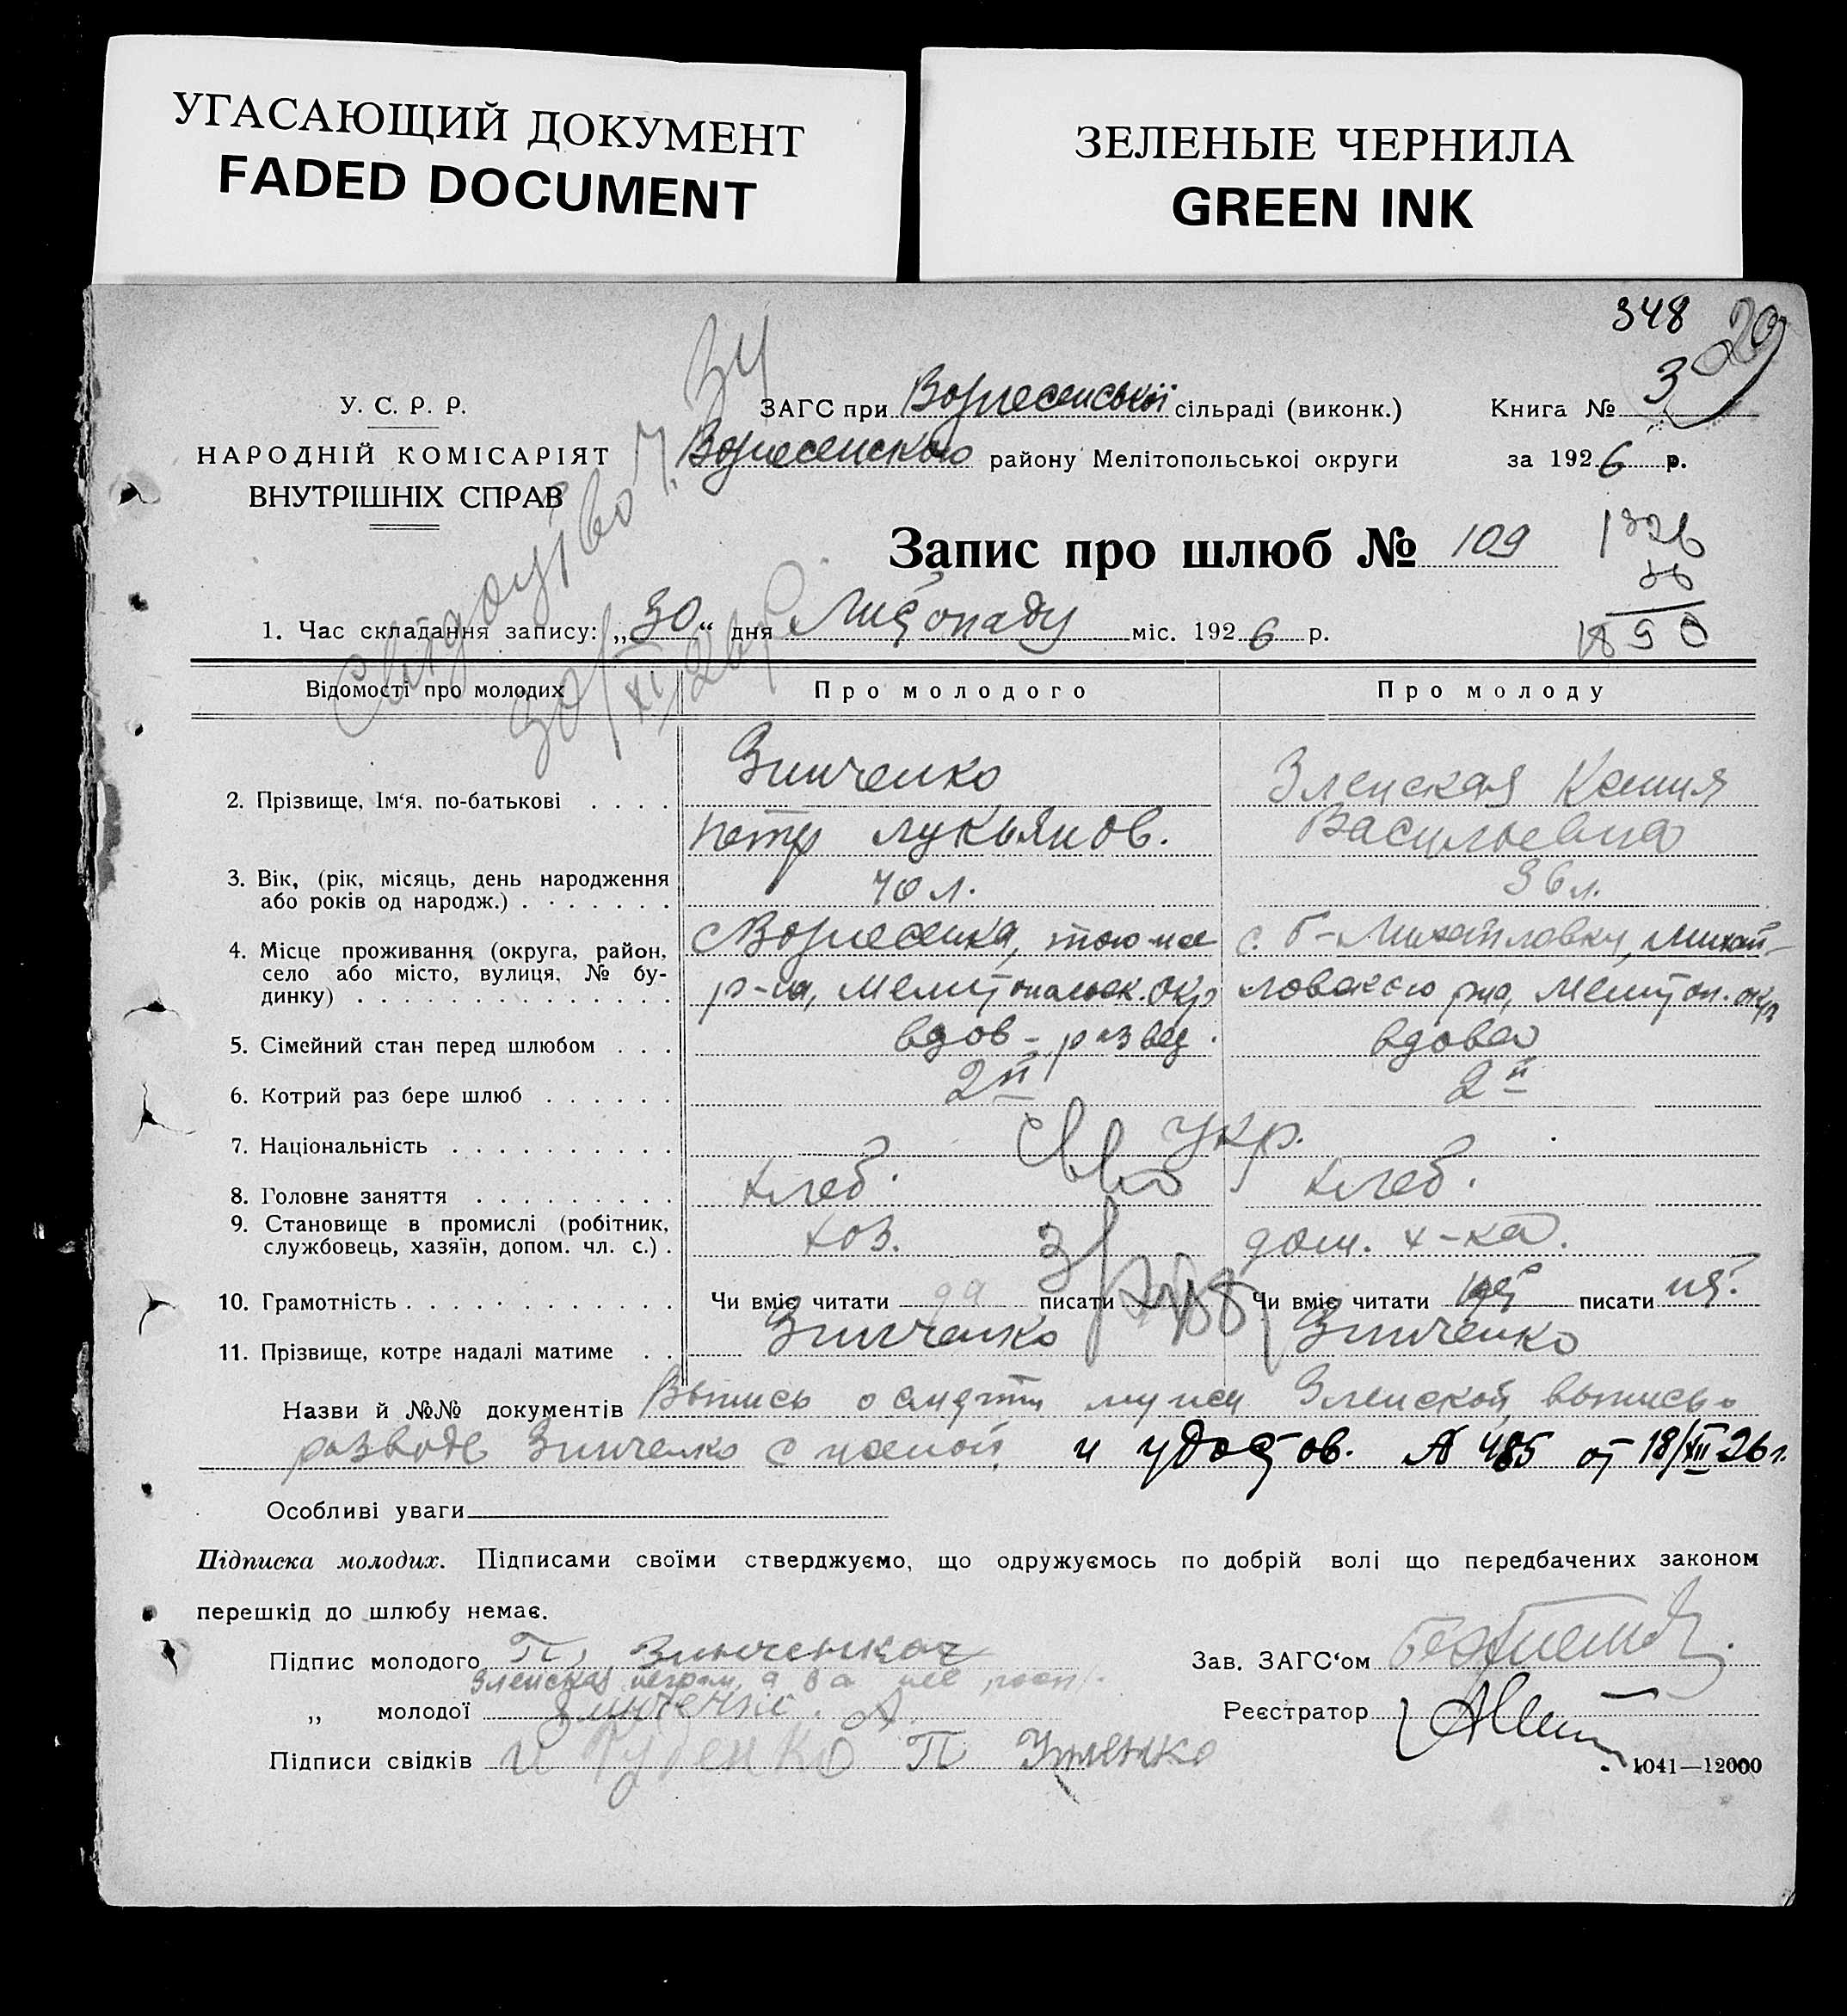 УГАСАЮЩИЙ ДОКУМЕНТ
FADED DOCUMENT
ЗЕЛЕНЫЕ ЧЕРНИЛА
GREEN INK
348
29
34
У. С. Р. Р.
НАРОДНІЙ КОМІСАРІЯТ
ВНУТРІШНІХ СПРАВ
ЗАГС при Вознесенської сільраді (виконк.)
Книга № 3
Вознесенского району Мелітопольської округи
за 1926 р.
Запис про шлюб № 109
1926
36
1890
1. Час складання запису: „30“ дня Листопаду міс. 1926 р.
30/XI 26
Відомості про молодих
Про молодого
Про молоду
2. Прізвище, Ім‘я, по-батькові
Зинченко
Петр Лукьянов.
Зленская Ксения
Васильевна
3. Вік, (рік, місяць, день народження
або років од народж.)
40 л.
36 л.
4. Місце проживання (округа, район,
село або місто, вулиця, № бу-
динку)
с Вознесенка, того-же
р-на, Мелитопольск. окр
с. Б-Михайловки, Михай-
ловского рна, Мелитоп. окр
5. Сімейний стан перед шлюбом
вдов - развед.
вдова
6. Котрий раз бере шлюб
2й
2й
7. Національність
укр.
8. Головне заняття
хлеб.
хлеб.
9. Становище в промислі (робітник,
службовець, хазяїн, допом. чл. с.)
хоз.
дом. х-ка.
10. Грамотність
Чи вміє читати да писати
Чи вміє читати писати
11. Прізвище, котре надалі матиме
Зинченко
Зинченко
Назви й №№ документів Выпись о смерти мужа Зленской, выпись о
разводе Зинченко с женой и удостов. № 485 от 18/XII 26 г.
Особливі уваги
Підписка молодих. Підписами своїми стверджуємо, що одружуємось по добрій волі що передбачених законом
перешкід до шлюбу немає.
Підпис молодого П. Зинченко
Зав. ЗАГС‘ом
Зленская неграм. а за нее росп.
„ молодої Зинченко. А.
Реєстратор
Підписи свідків И Руденко П
1041—12000